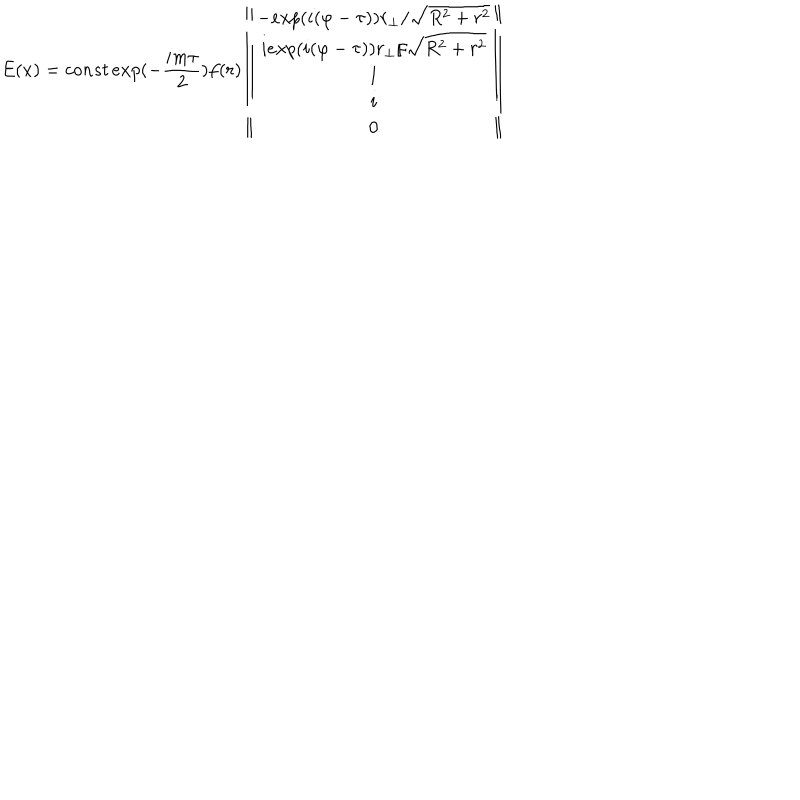 E(x) = const exp(-\frac{imτ}{2})f(r) \left\| \begin{matrix} -exp(i(φ-τ))r_⊥/\sqrt{R^2+r^2} \\ iexp(i(φ-τ))r_⊥F\sqrt{R^2+r^2} \\ 1 \\ i \\ 0 \end{matrix} \right\|